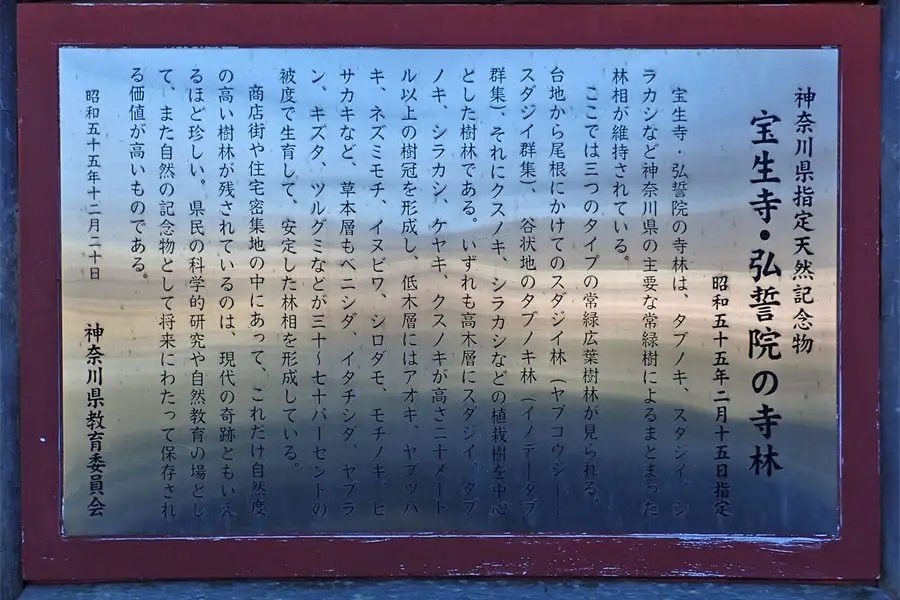 神奈川県指定天然記念物
宝生寺・弘誓院の寺林
昭和五十五年二月十五日指定
宝生寺・弘誓院の寺林は、タブノキ、スダジイ、シ
ラカシなど神奈川県の主要な常緑樹によるまとまった
林相が維持されている。
ここでは三つのタイプの常緑広葉樹林が見られる。
台地から尾根にかけてのスダジイ林（ヤブコウジ―
スダジイ群集）、谷状地のタブノキ林（イノデ―タブ
群集）、それにクスノキ、シラカシなどの植栽樹を中心
とした樹林である。いずれも高木層にスダジイ、タブ
ノキ、シラカシ、ケヤキ、クスノキが高さ二十メート
ル以上の樹冠を形成し、低木層にはアオキ、ヤブツバ
キ、ネズミモチ、イヌビワ、シロダモ、モチノキ、ヒ
サカキなど、草本層もベニシダ、イタチシダ、ヤブラ
ン、キズタ、ツルグミなどが三十〜七十パーセントの
被度で生育して、安定した林相を形成している。
商店街や住宅密集地の中にあって、これだけ自然度
の高い樹林が残されているのは、現代の奇跡ともいえ
るほど珍しい。県民の科学的研究や自然教育の場とし
て、また自然の記念物として将来にわたって保存され
る価値が高いものである。
昭和五十五年十二月二十日
神奈川県教育委員会